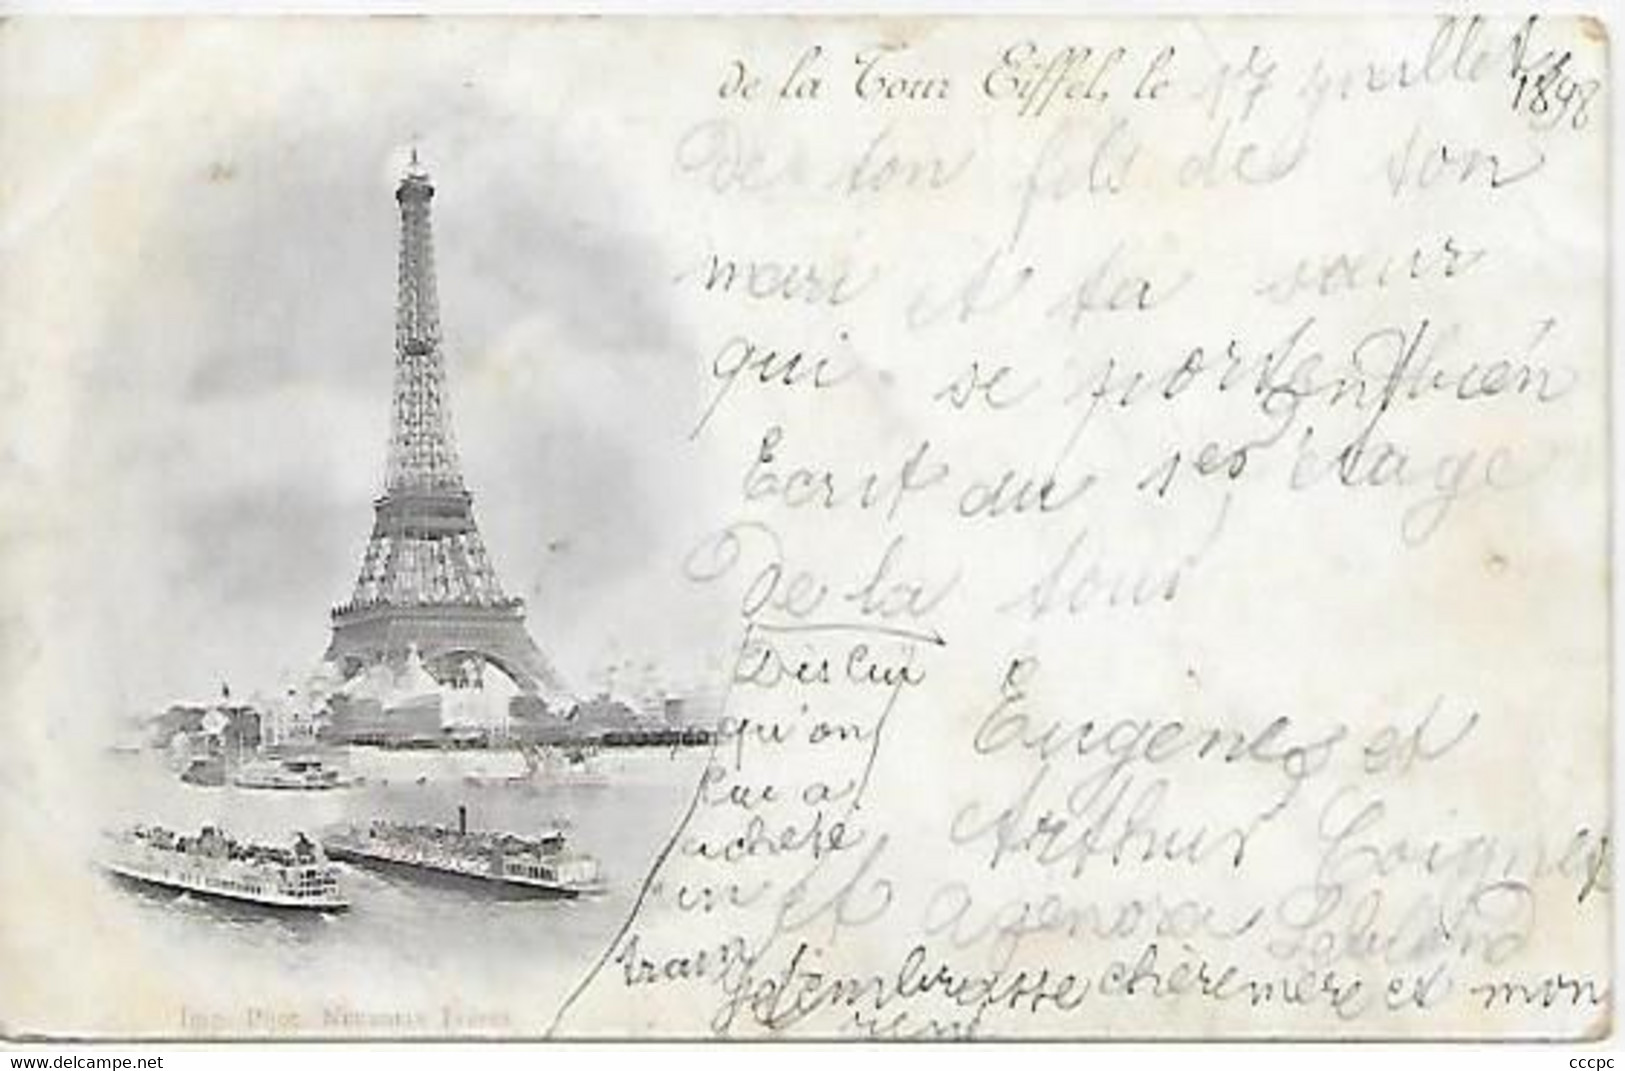 de la Tour Eiffel, le 17 juillet
1898
De ton fils de ton
mari et ta sœur
qui se portent bien
Ecrit du 1er étage
De la tour
Eugène et
Arthur Coignet
et Agenora
Dis lui
qu'on
lui a
acheté
un
train
Je t'embrasse chère mère et mon
Imp. Pijot Neurdein Frères
cccpc